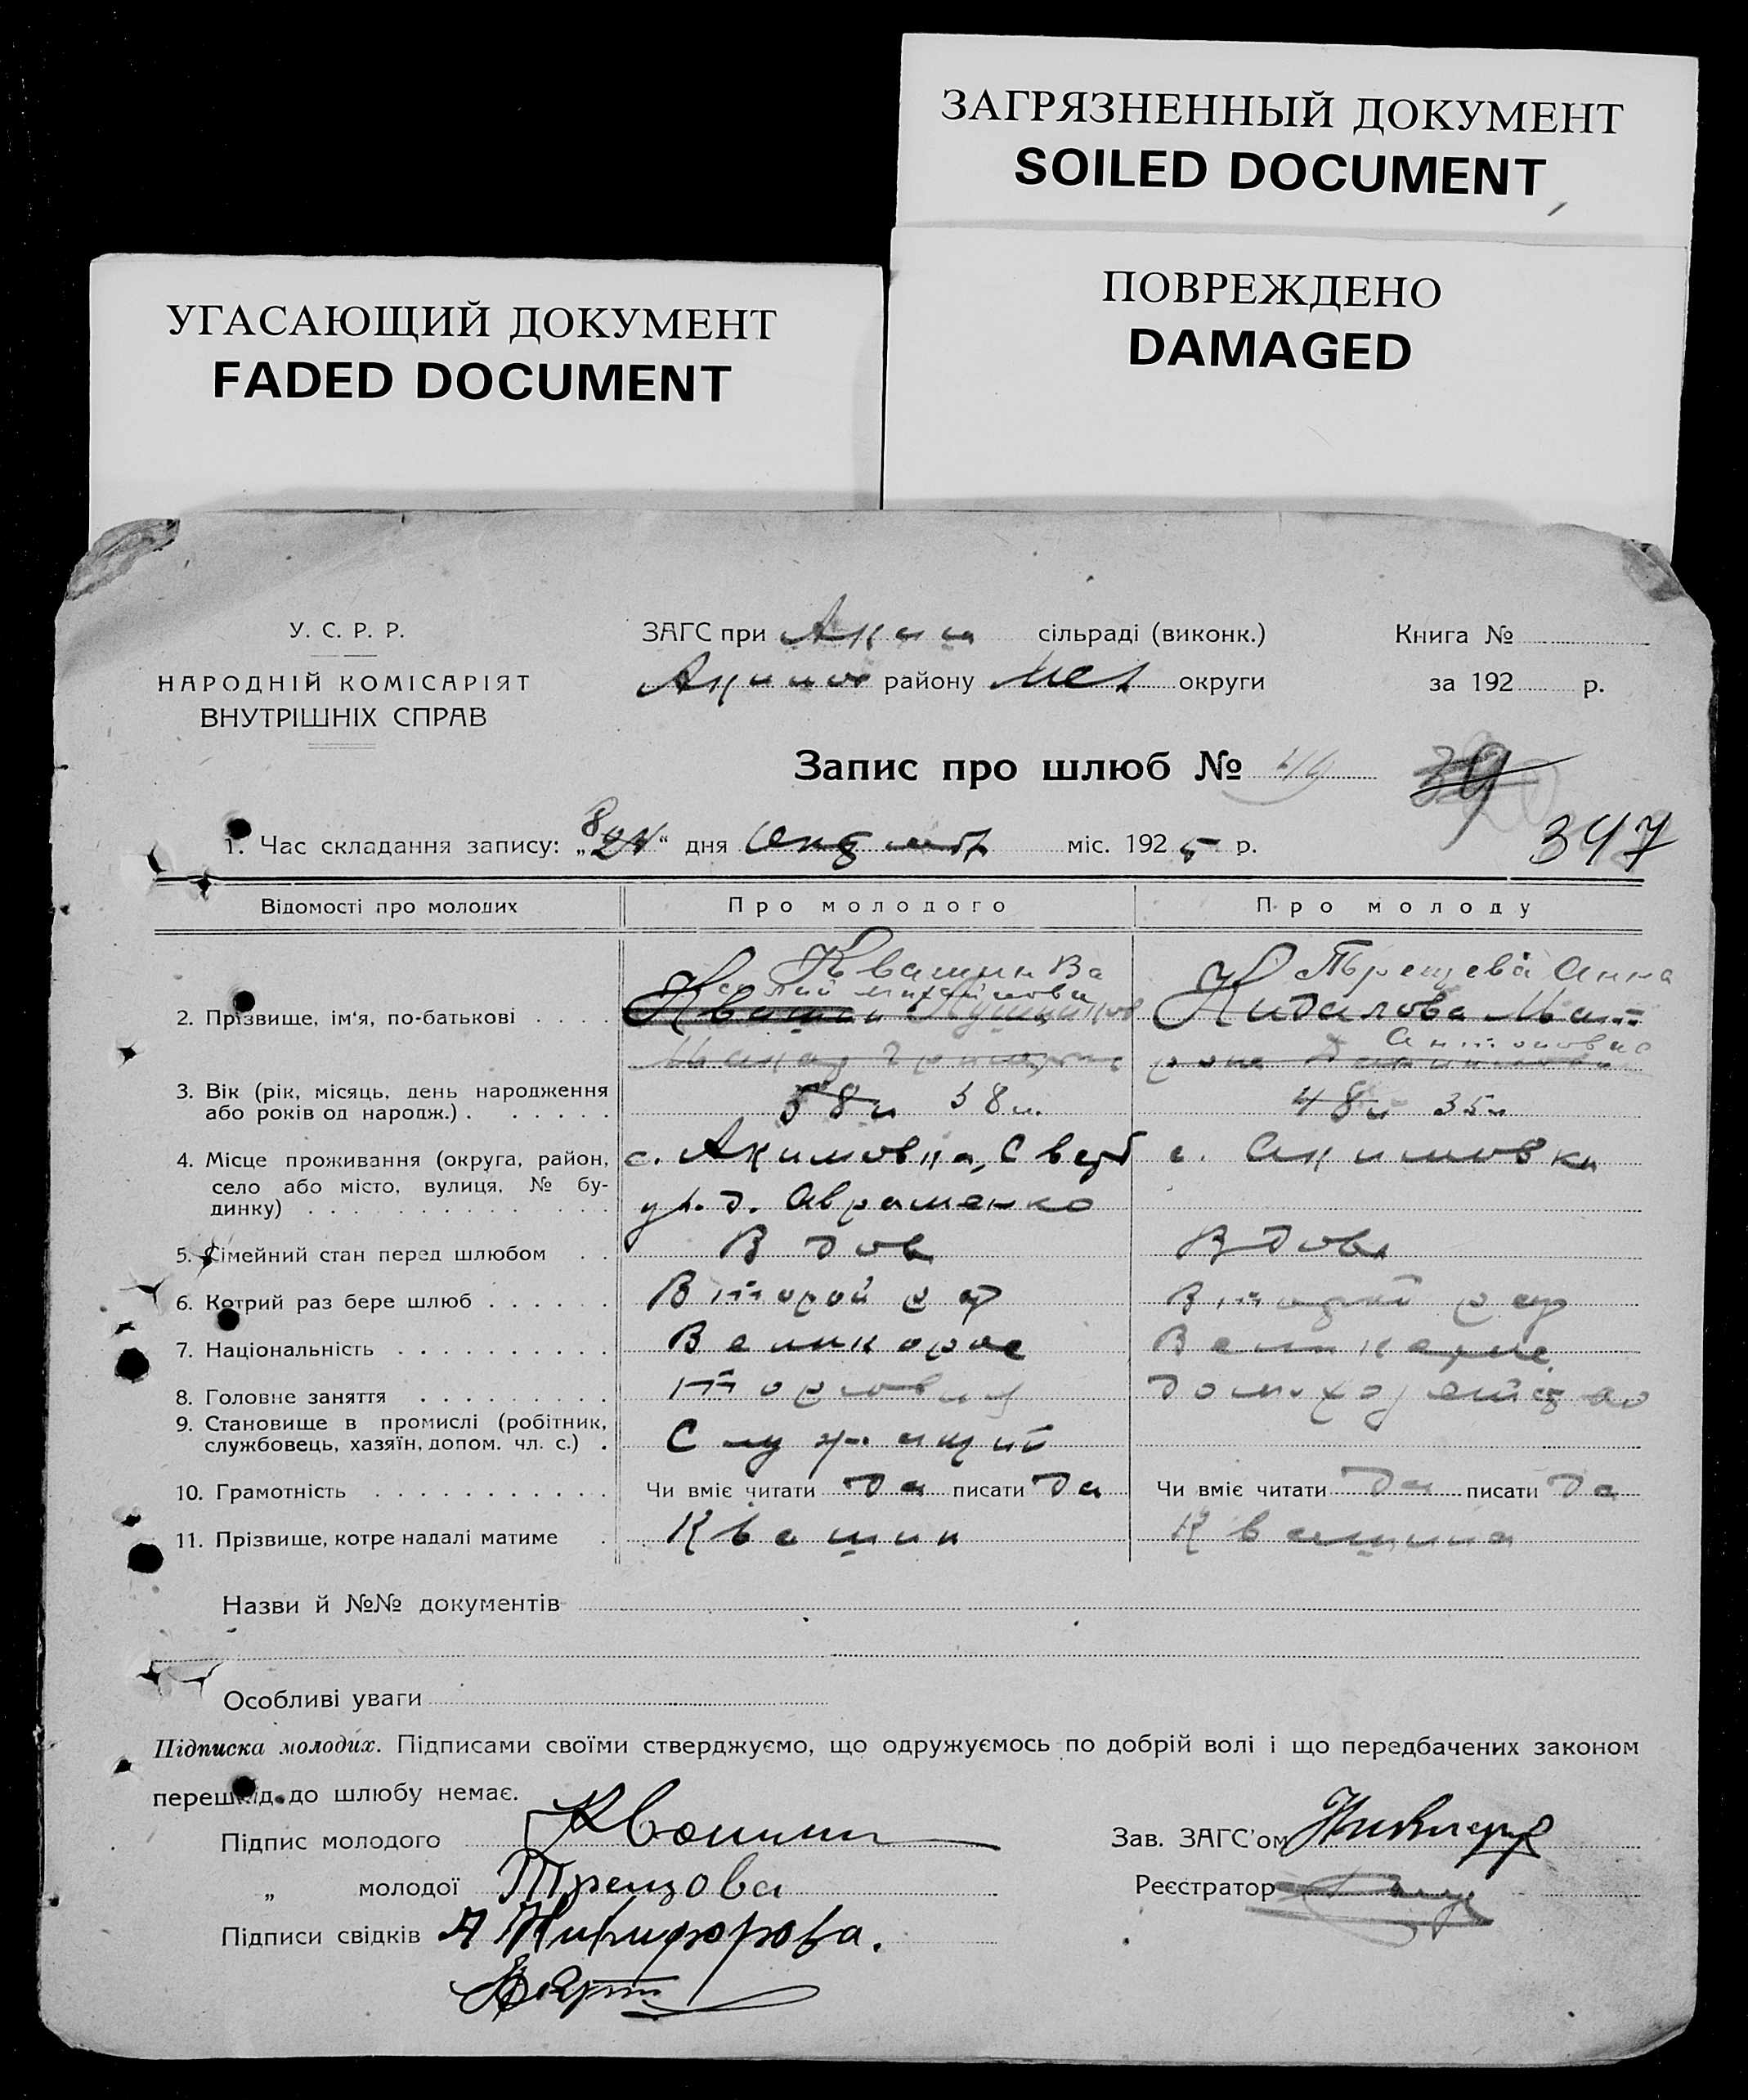 ЗАГРЯЗНЕННЫЙ ДОКУМЕНТ
SOILED DOCUMENT
УГАСАЮЩИЙ ДОКУМЕНТ
FADED DOCUMENT
ПОВРЕЖДЕНО
DAMAGED
У. С. Р. Р.
НАРОДНІЙ КОМІСАРІЯТ
ВНУТРІШНІХ СПРАВ
ЗАГС при Аким сільраді (виконк.)
Акимов району Мел округи
Книга №
за 192 р.
Запис про шлюб № 39
347
1. Час складання запису: „8“ дня октября міс. 1925 р.
Відомості про молодих Про молодого Про молоду
Квашин Ва Трещева Анна
силий михайлови
2. Прізвище, ім‘я, по-батькові Квашин Кидалова
Антоновна
3. Вік (рік, місяць, день народження
або років од народж.) 58л 38л. 48л 35л
4. Місце проживання (округа, район, с. Акимовка, Сверд с. Акимовка
село або місто, вулиця, № бу-
динку) ул. д. Авраменко
5. Сімейний стан перед шлюбом Вдов Вдова
6. Котрий раз бере шлюб Второй раз Второй раз
7. Національність Великорос Великорос
8. Головне заняття Торговец домохозяйство
9. Становище в промислі (робітник,
службовець, хазяїн, допом. чл. с.) Служащий
10. Грамотність Чи вміє читати да писати да Чи вміє читати да писати да
11. Прізвище, котре надалі матиме Квашин Квашина
Назви й №№ документів
Особливі уваги
Підписка молодих. Підписами своїми стверджуємо, що одружуємось по добрій волі і що передбачених законом
перешкід до шлюбу немає.
Підпис молодого Квашин Зав. ЗАГС’ом
„ молодої Трещова Реєстратор
Підписи свідків А Никифорова.